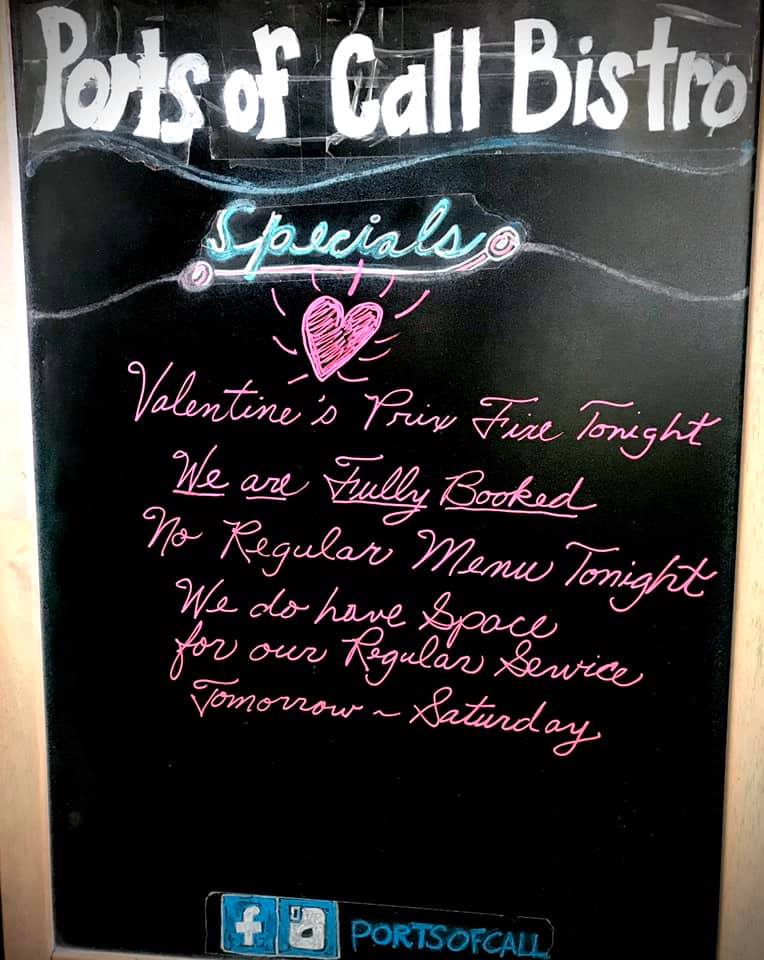 Ports of Call Bistro
Specials
Valentine's Prix Fixe Tonight
We are Fully Booked
No Regular Menu Tonight
We do have Space
for our Regular Service
Tomorrow ~ Saturday
f PORTSOFCALL